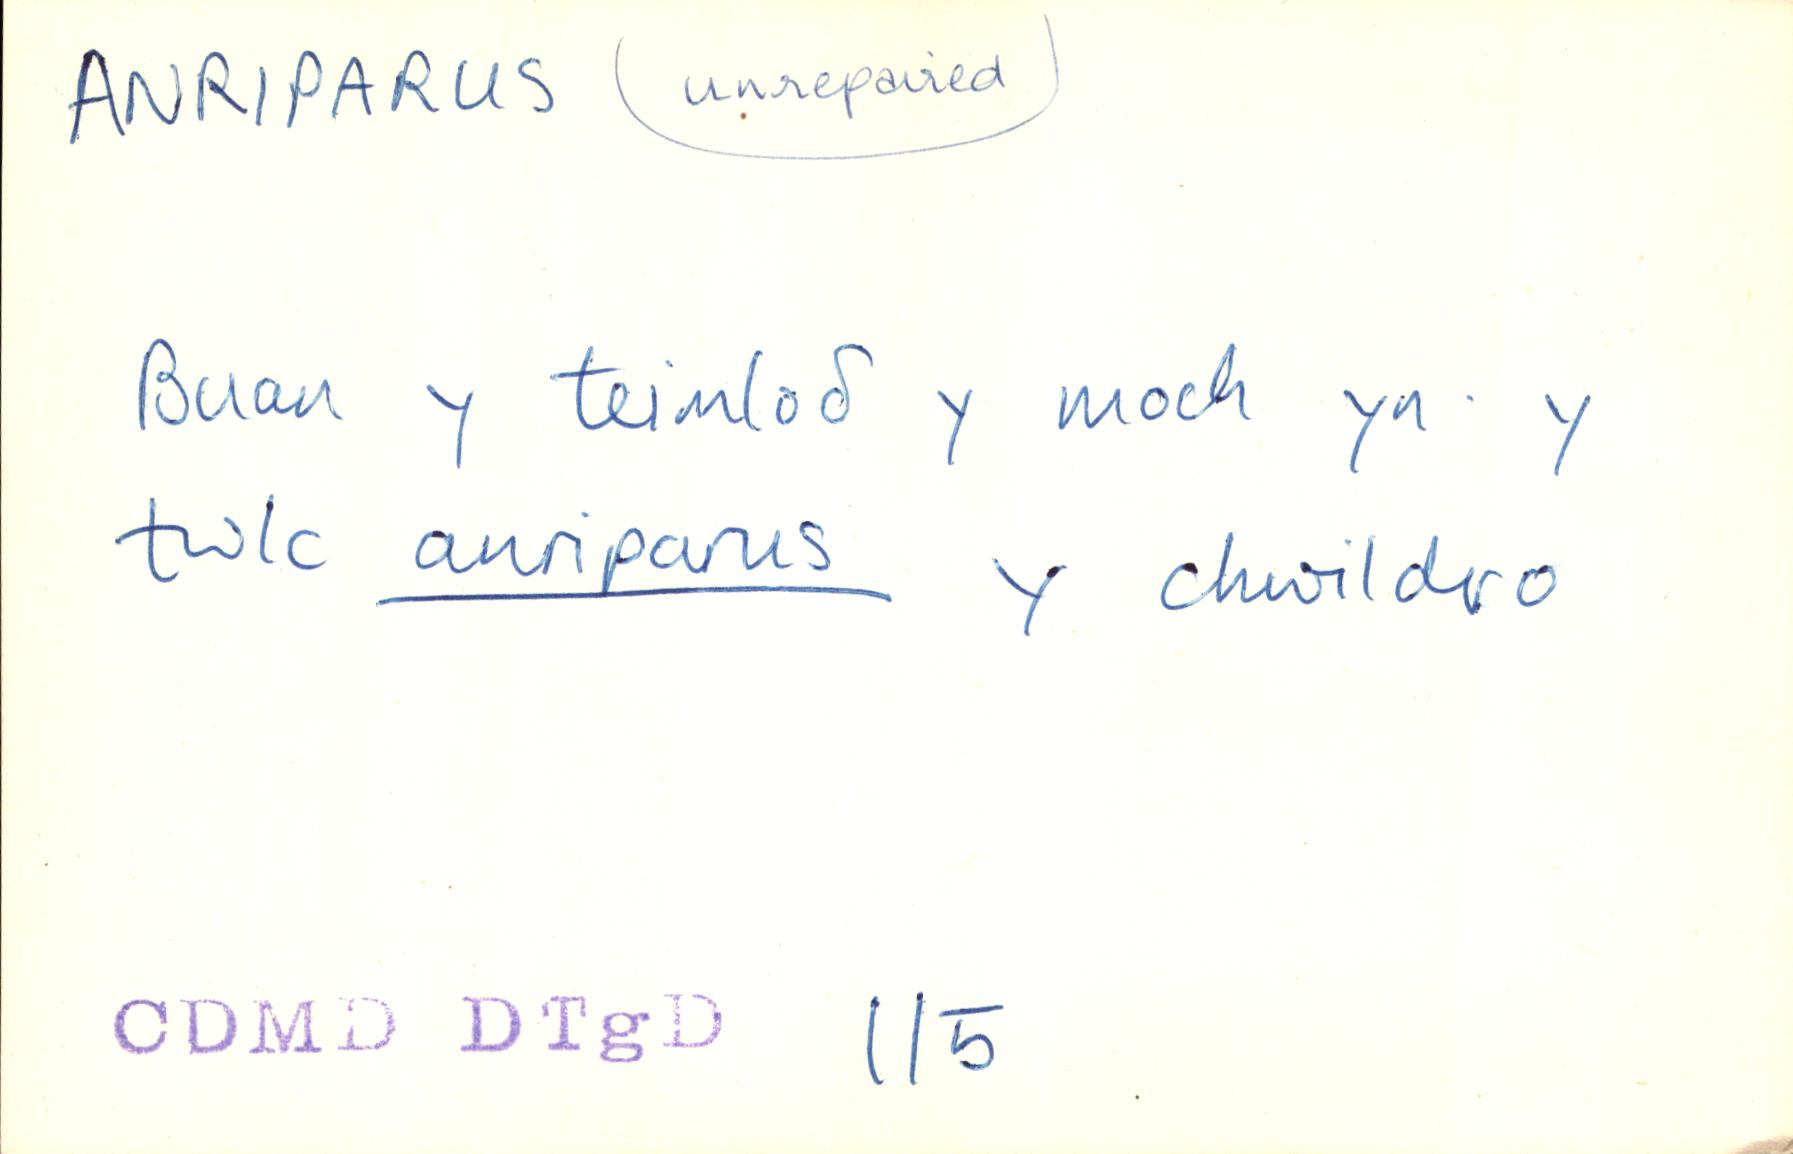 ANRIPARUS (unrepaired)
Buan y teimloδ y moch yn y
twlc anriparus y chwildro
CDMD DTgD 115